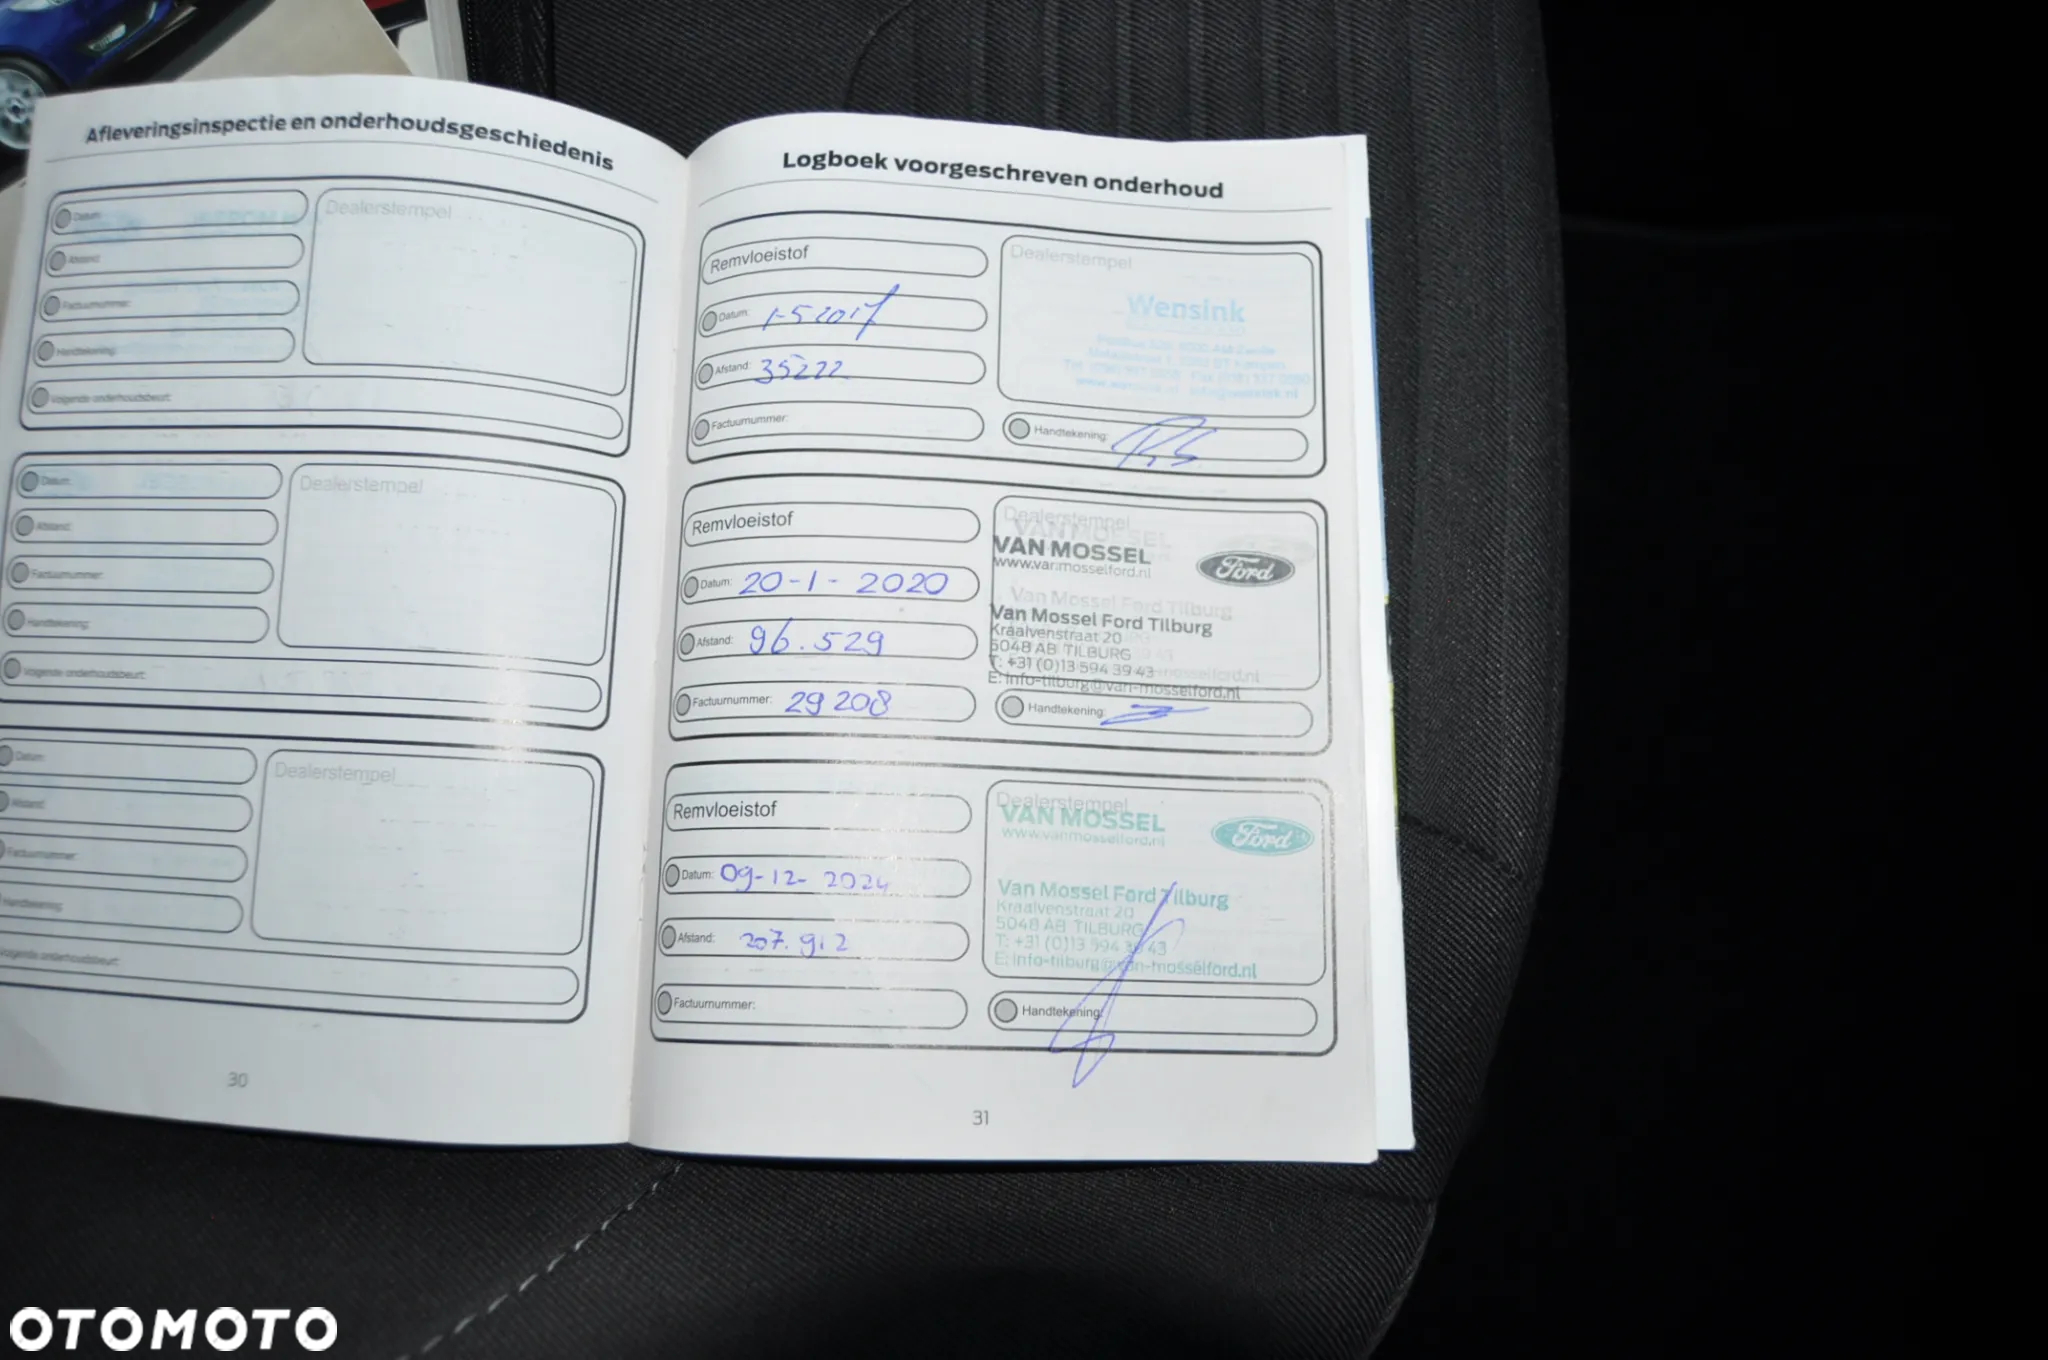 Afleveringsinspectie en onderhoudsgeschiedenis
Datum:
Dealerstempel
Afstand:
Factuurnummer:
Handtekening:
Volgende onderhoudsbeurt:
Datum:
Dealerstempel
Afstand:
Factuurnummer:
Handtekening:
Volgende onderhoudsbeurt:
Datum:
Dealerstempel
Afstand:
Factuurnummer:
Handtekening:
Volgende onderhoudsbeurt:
30
Logboek voorgeschreven onderhoud
Remvloeistof
Dealerstempel
Datum: 1-5 2017
Wensink
Afstand: 35222
Factuurnummer:
Handtekening:
Remvloeistof
Dealerstempel
VAN MOSSEL
www.vanmosselford.nl
Ford
Datum: 20-1-2020
Van Mossel Ford Tilburg
Kraalvenstraat 20
5048 AB TILBURG
T: +31 (0)13 594 39 43
E: info-tilburg@van-mosselford.nl
Afstand: 96.529
Factuurnummer: 29208
Handtekening:
Remvloeistof
Dealerstempel
VAN MOSSEL
www.vanmosselford.nl
Ford
Datum: 09-12-2024
Van Mossel Ford Tilburg
Kraalvenstraat 20
5048 AB TILBURG
T: +31 (0)13 594 39 43
E: info-tilburg@van-mosselford.nl
Afstand: 207.912
Factuurnummer:
Handtekening:
31
OTOMOTO